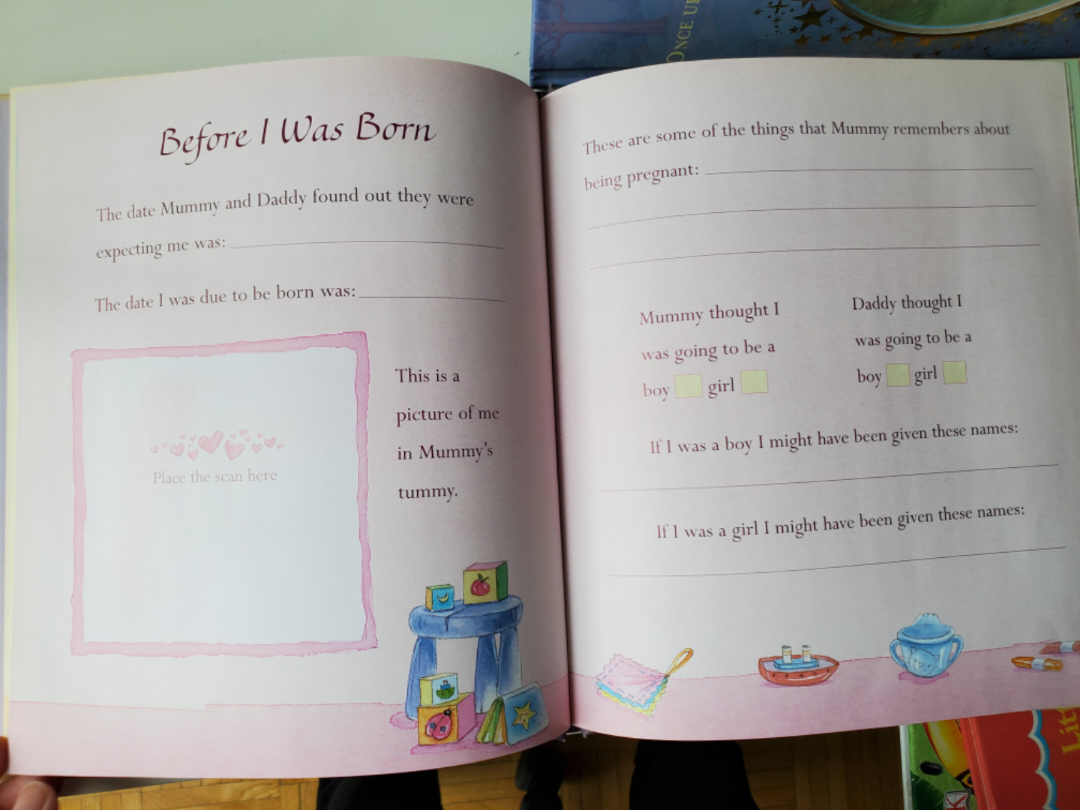 Before I Was Born
The date Mummy and Daddy found out they were
expecting me was:
The date I was due to be born was:
Place the scan here
This is a
picture of me
in Mummy's
tummy.
ONCE
These are some of the things that Mummy remembers about
being pregnant:
Mummy thought I
was going to be a
boy girl
Daddy thought I
was going to be a
boy girl
If I was a boy I might have been given these names:
If I was a girl I might have been given these names: